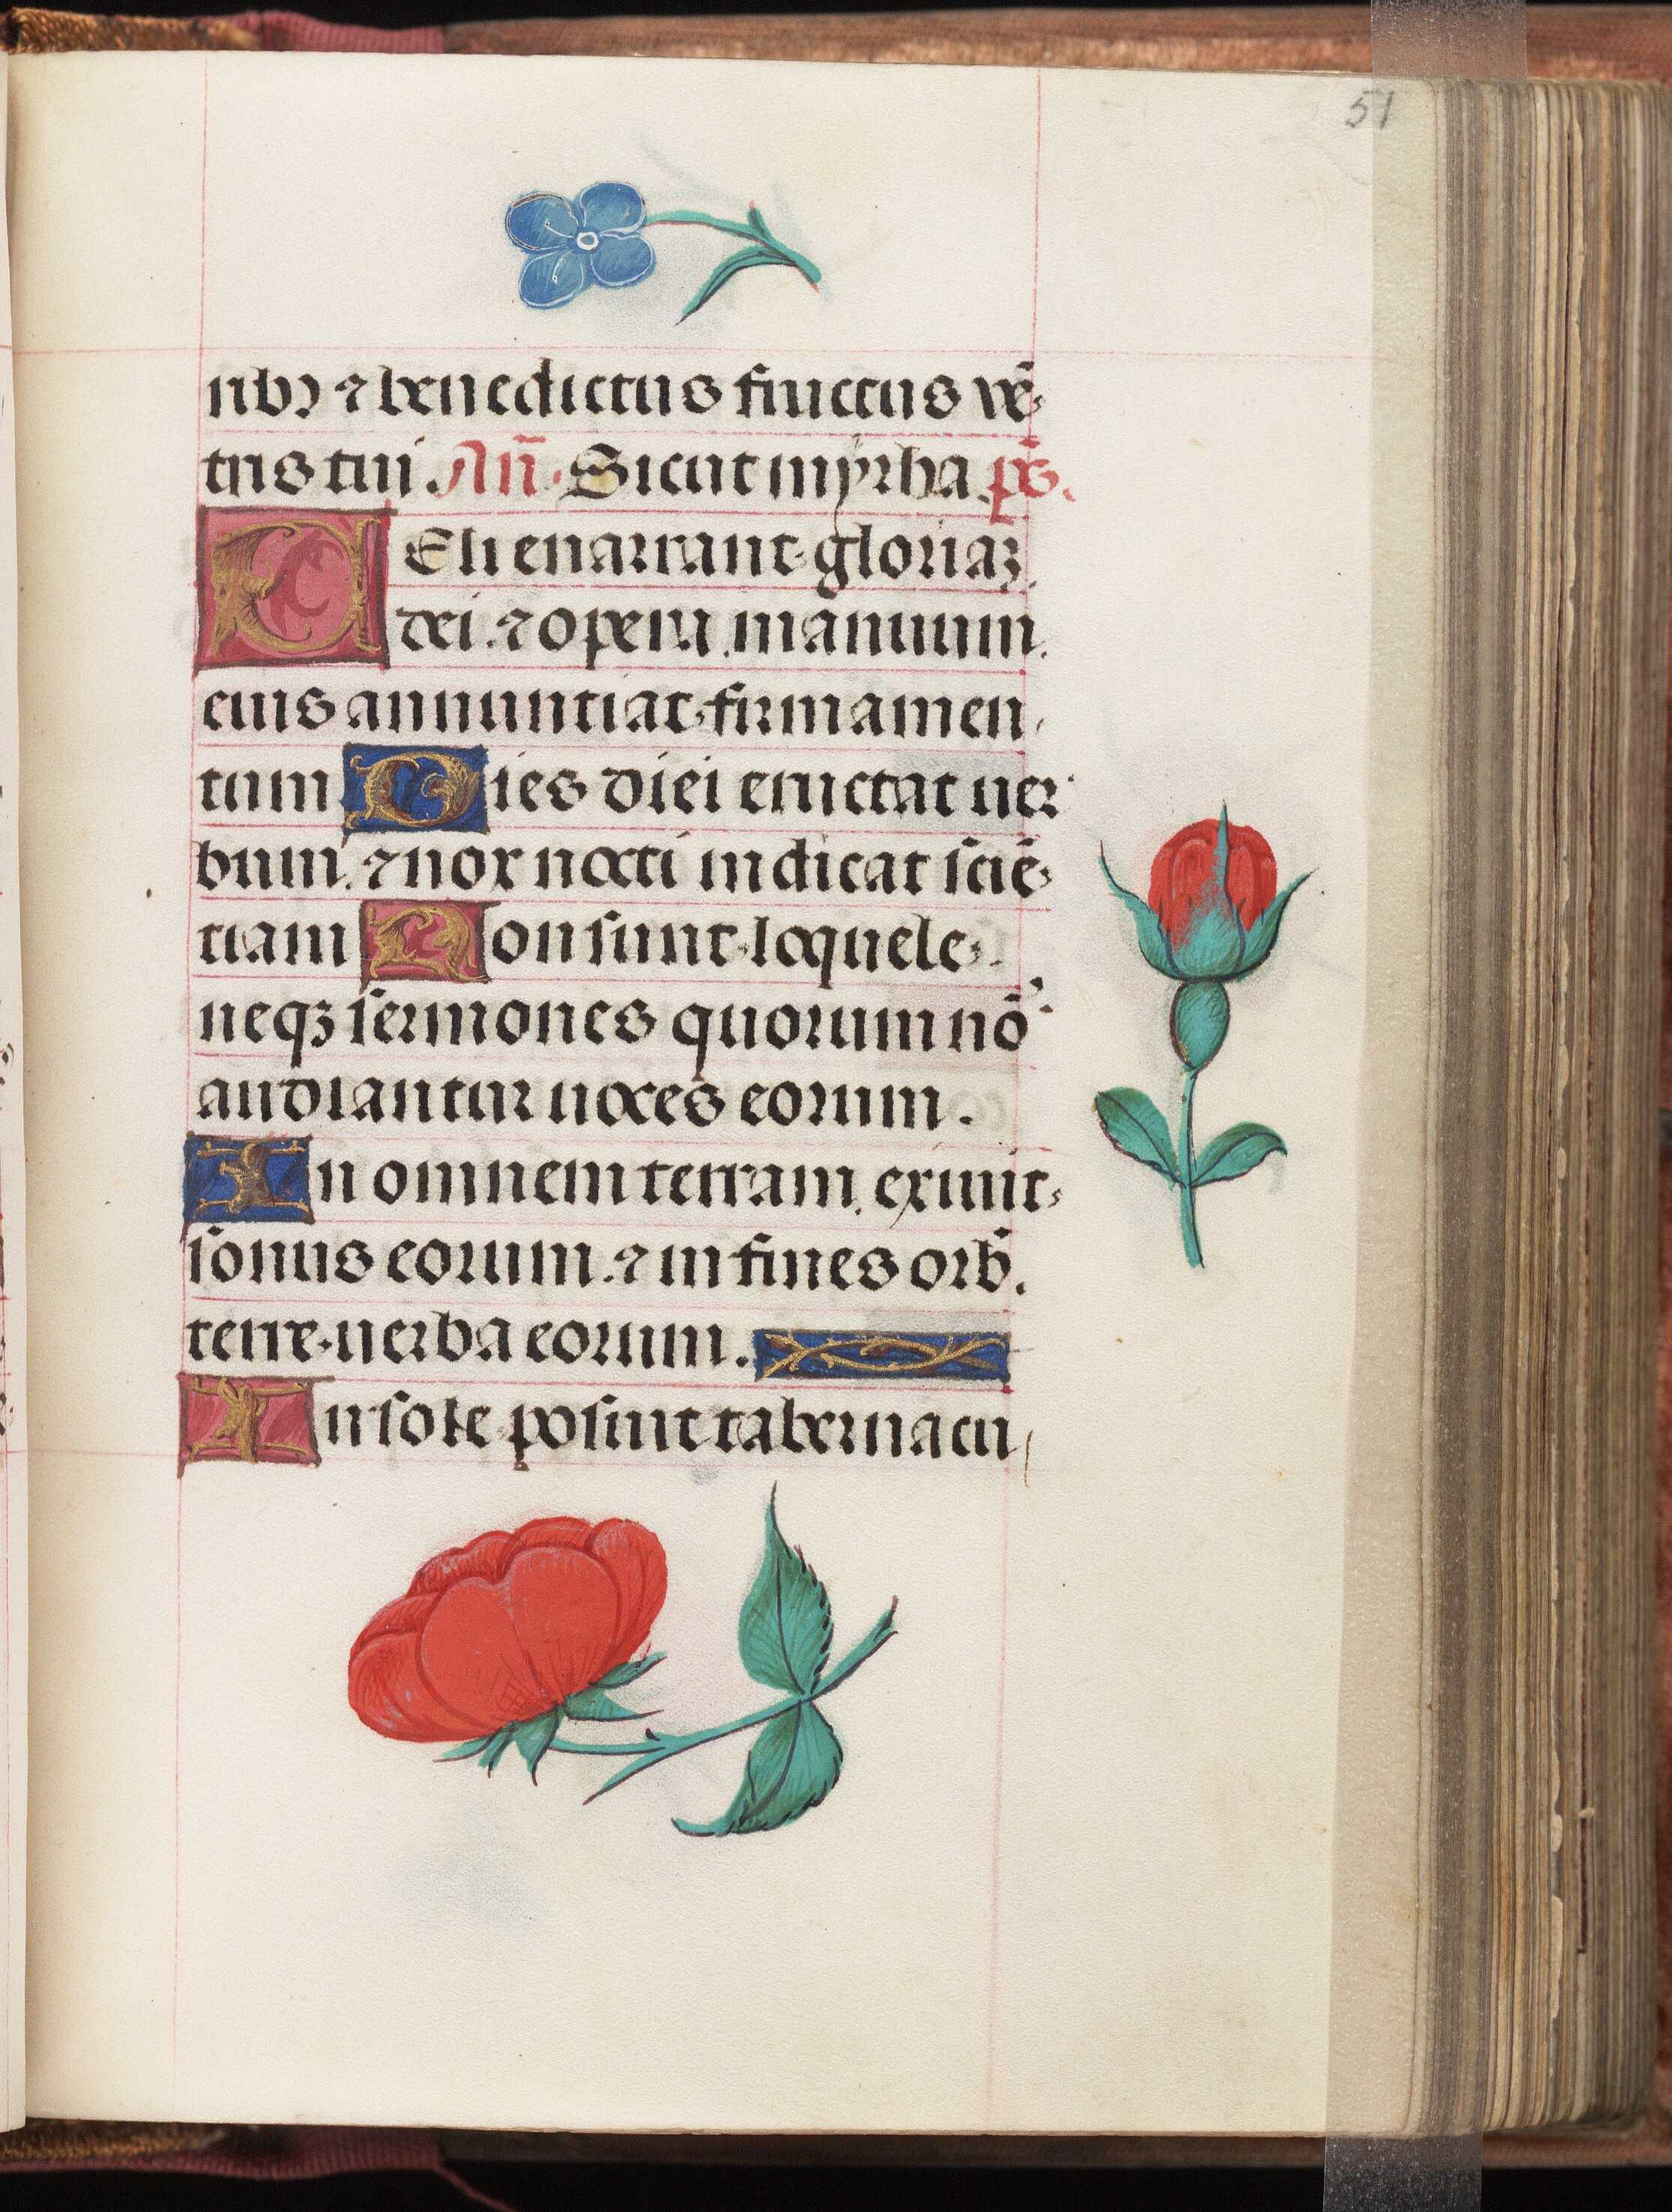 51
ribꝰ ⁊ benedictus fructus vē-
tris tui. An̄. Sicut myrha p̄s.
CEli enarrant gloriaꝫ
dei. ⁊ opera manuum
eius annuntiat firmamen
tum Dies diei eructat uer
bum. ⁊ nox nocti indicat sciē-
tiam Non sunt loquele.
neqꝫ sermones quorum nō
audiantur uoces eorum.
In omnem terram exiuit
sonus eorum. ⁊ in fines orb̄.
terre uerba eorum.
In sole posuit tabernacu